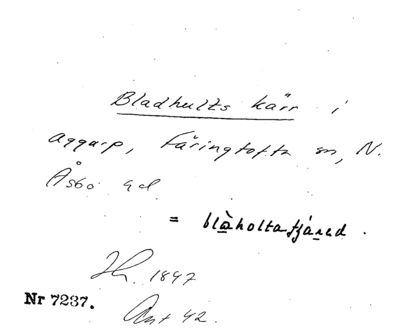 Bladhults kärr i
Aggarp, Färingtofta sn, N.
Åsbo hd
= blàholtafjáred.
1847
Nr 7237.
Ant 42.